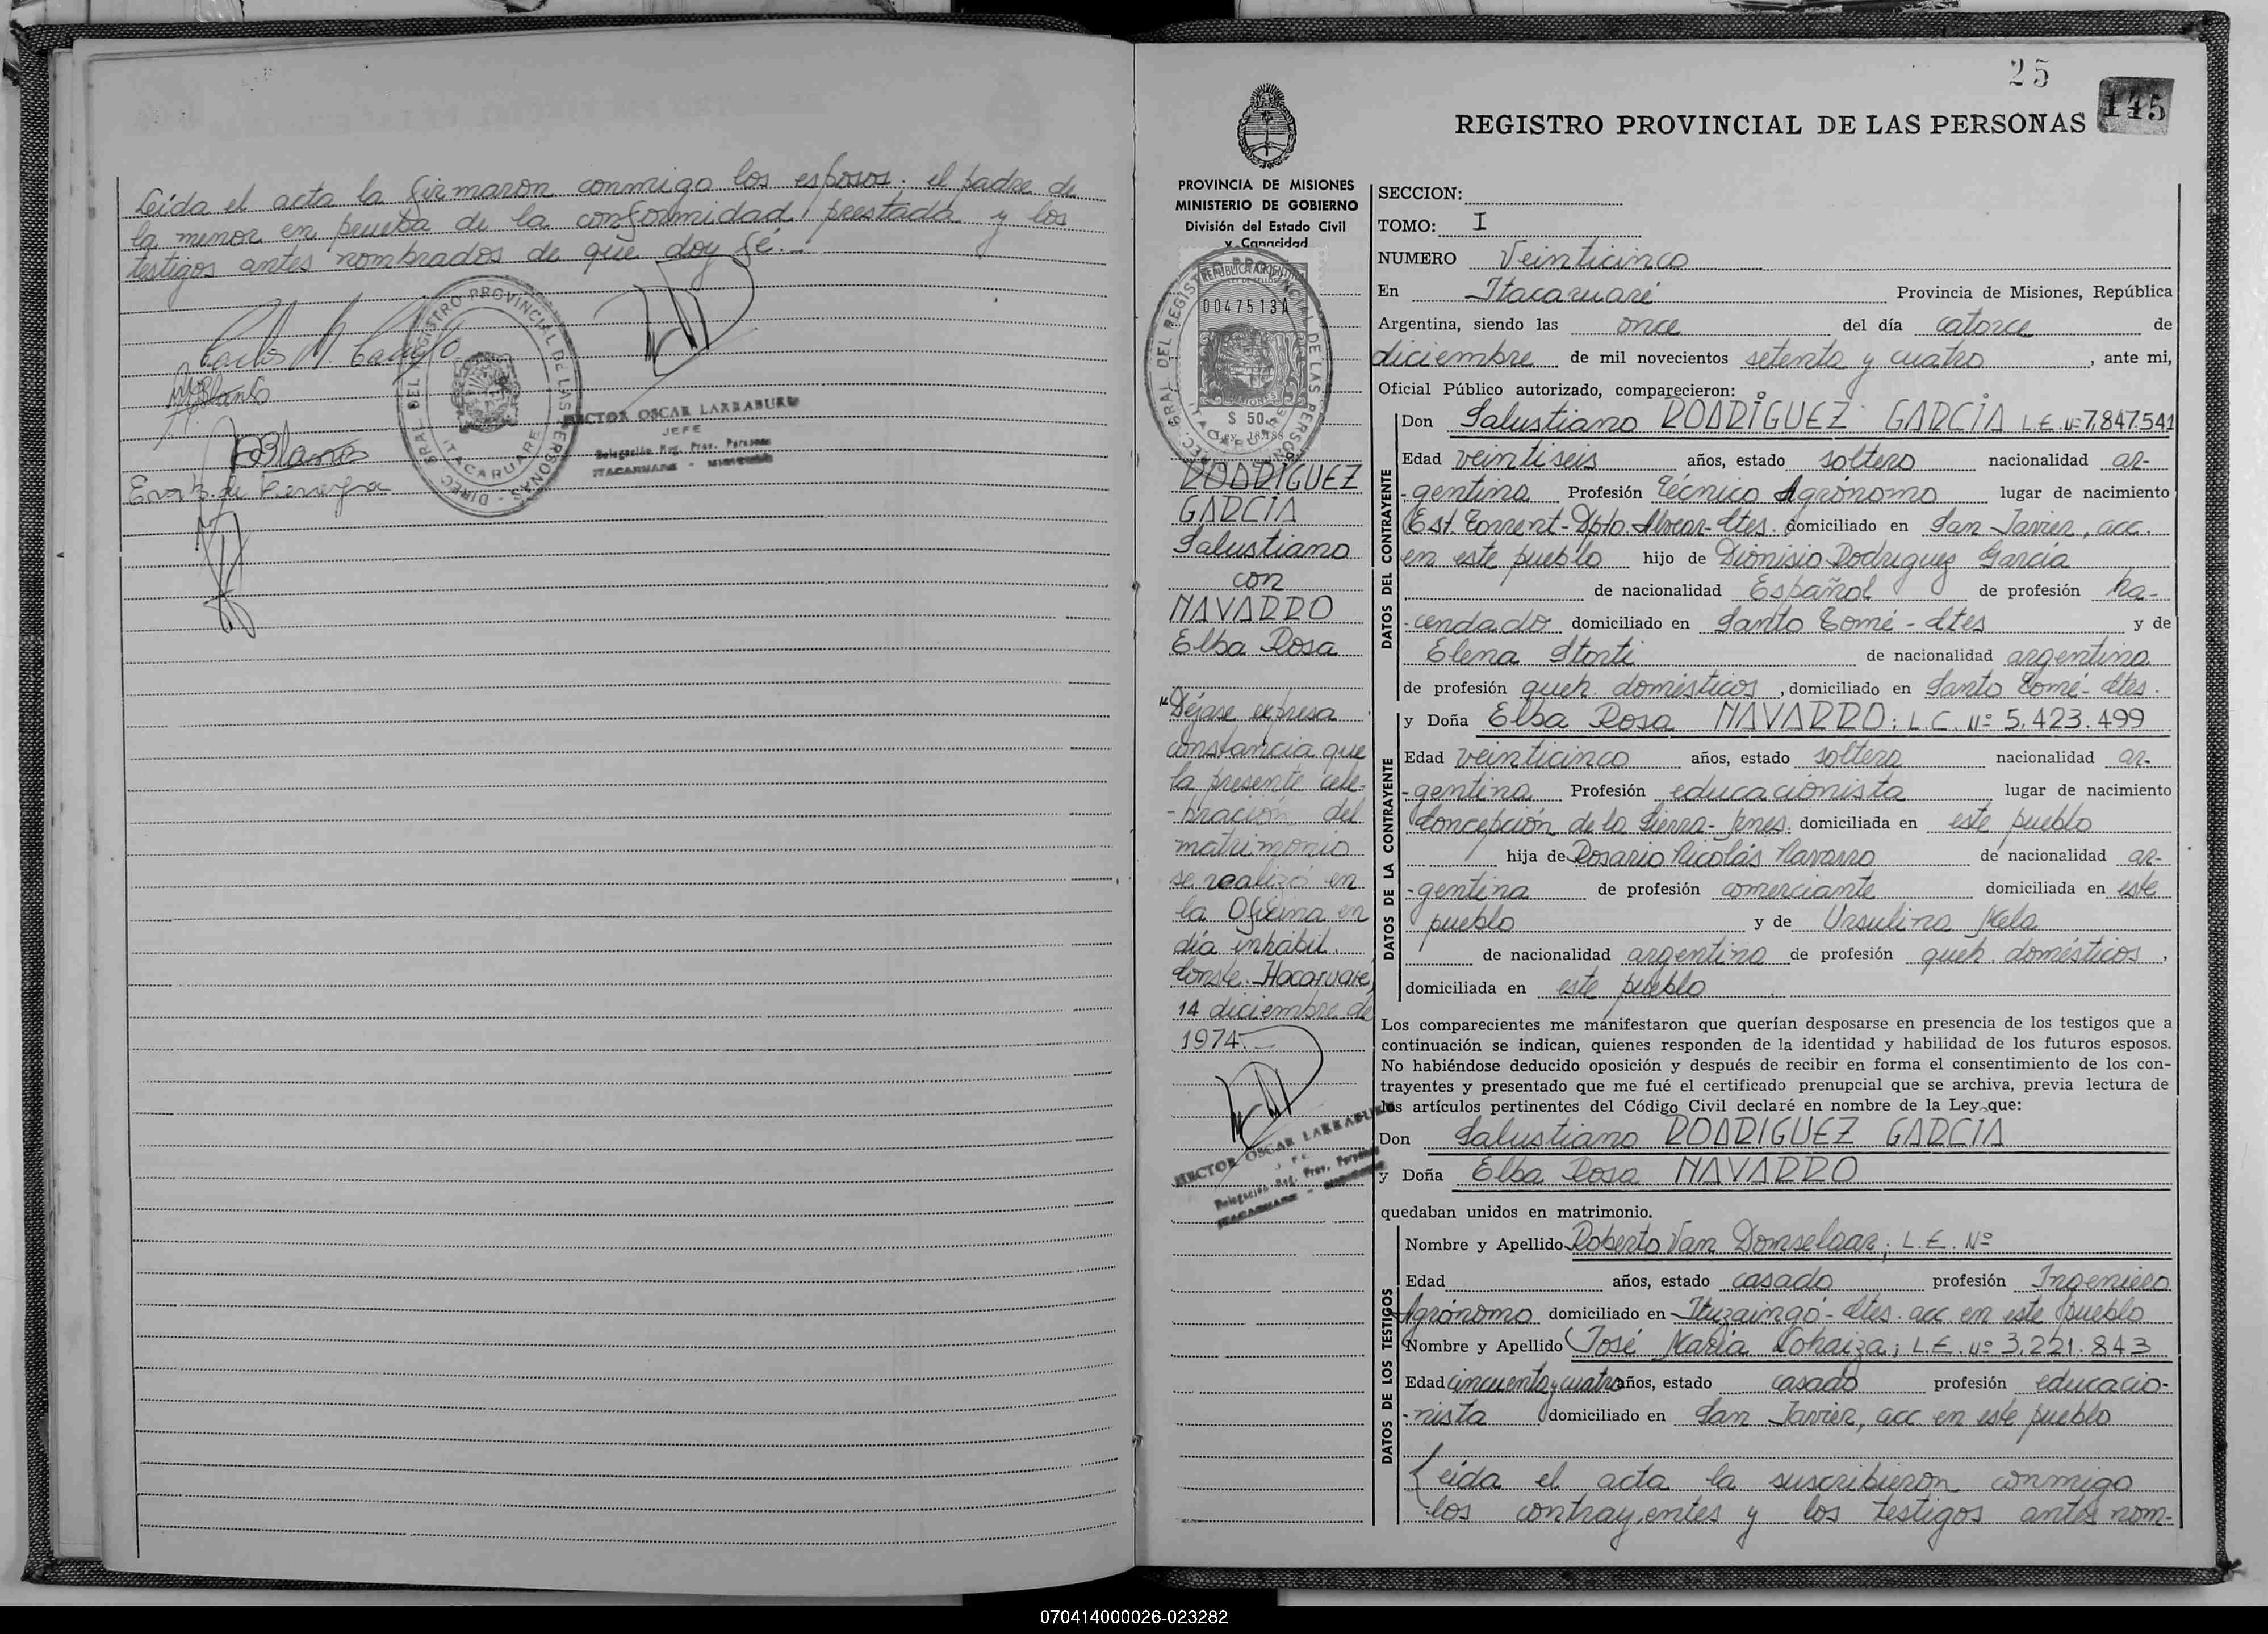 Leída el acta la firmaron conmigo los esposos; el padre de
la menor en prueba de la conformidad prestada y los
testigos antes nombrados de que doy fé.-
DIREC. GRAL DEL REGISTRO PROVINCIAL DE LAS PERSONAS
ITACARUARE
HECTOR OSCAR LARRABURU
JEFE
Delegación Reg. Prov. Personas
ITACARUARE - MISIONES
25
145
REGISTRO PROVINCIAL DE LAS PERSONAS
PROVINCIA DE MISIONES
MINISTERIO DE GOBIERNO
División del Estado Civil
y Capacidad
REPUBLICA ARGENTINA
0047513A
$ 50
DIREC. GRAL DEL REGISTRO PROVINCIAL DE LAS PERSONAS
ITACARUARE
RODRIGUEZ
GARCIA
Salustiano
con
NAVARRO
Elba Rosa
"Déjase expresa
constancia que
la presente cele-
-bración del
matrimonio
se realizó en
la Oficina en
día inhábil.
Conste. Itacaruare,
14 diciembre de
1974.-
HECTOR OSCAR LARRABURU
JEFE
Delegación Reg. Prov. Personas
ITACARUARE - MISIONES
SECCION:
TOMO: I
NUMERO Veinticinco
En Itacaruaré Provincia de Misiones, República
Argentina, siendo las once del día catorce de
diciembre de mil novecientos setenta y cuatro, ante mi,
Oficial Público autorizado, comparecieron:
DATOS DEL CONTRAYENTE
Don Salustiano RODRIGUEZ GARCÍA L.E. Nº 7.847.541
Edad veintiseis años, estado soltero nacionalidad ar-
-gentina Profesión Técnico Agrónomo lugar de nacimiento
Est. Torrent-Dpto. Alvear-Ctes. domiciliado en San Javier, acc.
en este pueblo hijo de Dionisio Rodriguez García
de nacionalidad Español de profesión ha-
-cendado domiciliado en Santo Tomé - Ctes y de
Elena Storti de nacionalidad argentina
de profesión queh. domésticos, domiciliado en Santo Tomé- Ctes.
DATOS DE LA CONTRAYENTE
y Doña Elba Rosa NAVARRO; L.C. Nº 5.423.499
Edad veinticinco años, estado soltera nacionalidad ar-
-gentina Profesión educacionista lugar de nacimiento
Concepción de la Sierra- domiciliada en este pueblo
hija de Rosario Nicolás Navarro de nacionalidad ar-
-gentina de profesión comerciante domiciliada en este
pueblo y de Ursulina
de nacionalidad argentina de profesión queh. domésticos,
domiciliada en este pueblo
Los comparecientes me manifestaron que querían desposarse en presencia de los testigos que a
continuación se indican, quienes responden de la identidad y habilidad de los futuros esposos.
No habiéndose deducido oposición y después de recibir en forma el consentimiento de los con-
trayentes y presentado que me fué el certificado prenupcial que se archiva, previa lectura de
los artículos pertinentes del Código Civil declaré en nombre de la Ley que:
Don Salustiano RODRIGUEZ GARCIA
y Doña Elba Rosa NAVARRO
quedaban unidos en matrimonio.
DATOS DE LOS TESTIGOS
Nombre y Apellido Roberto Van Domselaar; L.E. Nº
Edad años, estado casado profesión Ingeniero
Agrónomo domiciliado en Ituzaingó- Ctes. acc en este pueblo
Nombre y Apellido José María; L.E. Nº 3.221.843
Edad cincuenta y cuatro años, estado casado profesión educacio-
-nista domiciliado en San Javier, acc en este pueblo
Leída el acta la suscribieron conmigo
los contrayentes y los testigos antes nom-
070414000026-023282